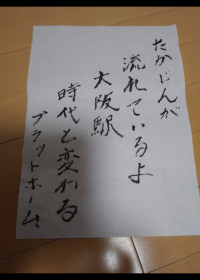 たかじんが
流れているよ
大阪駅
時代と変わる
プラットホーム